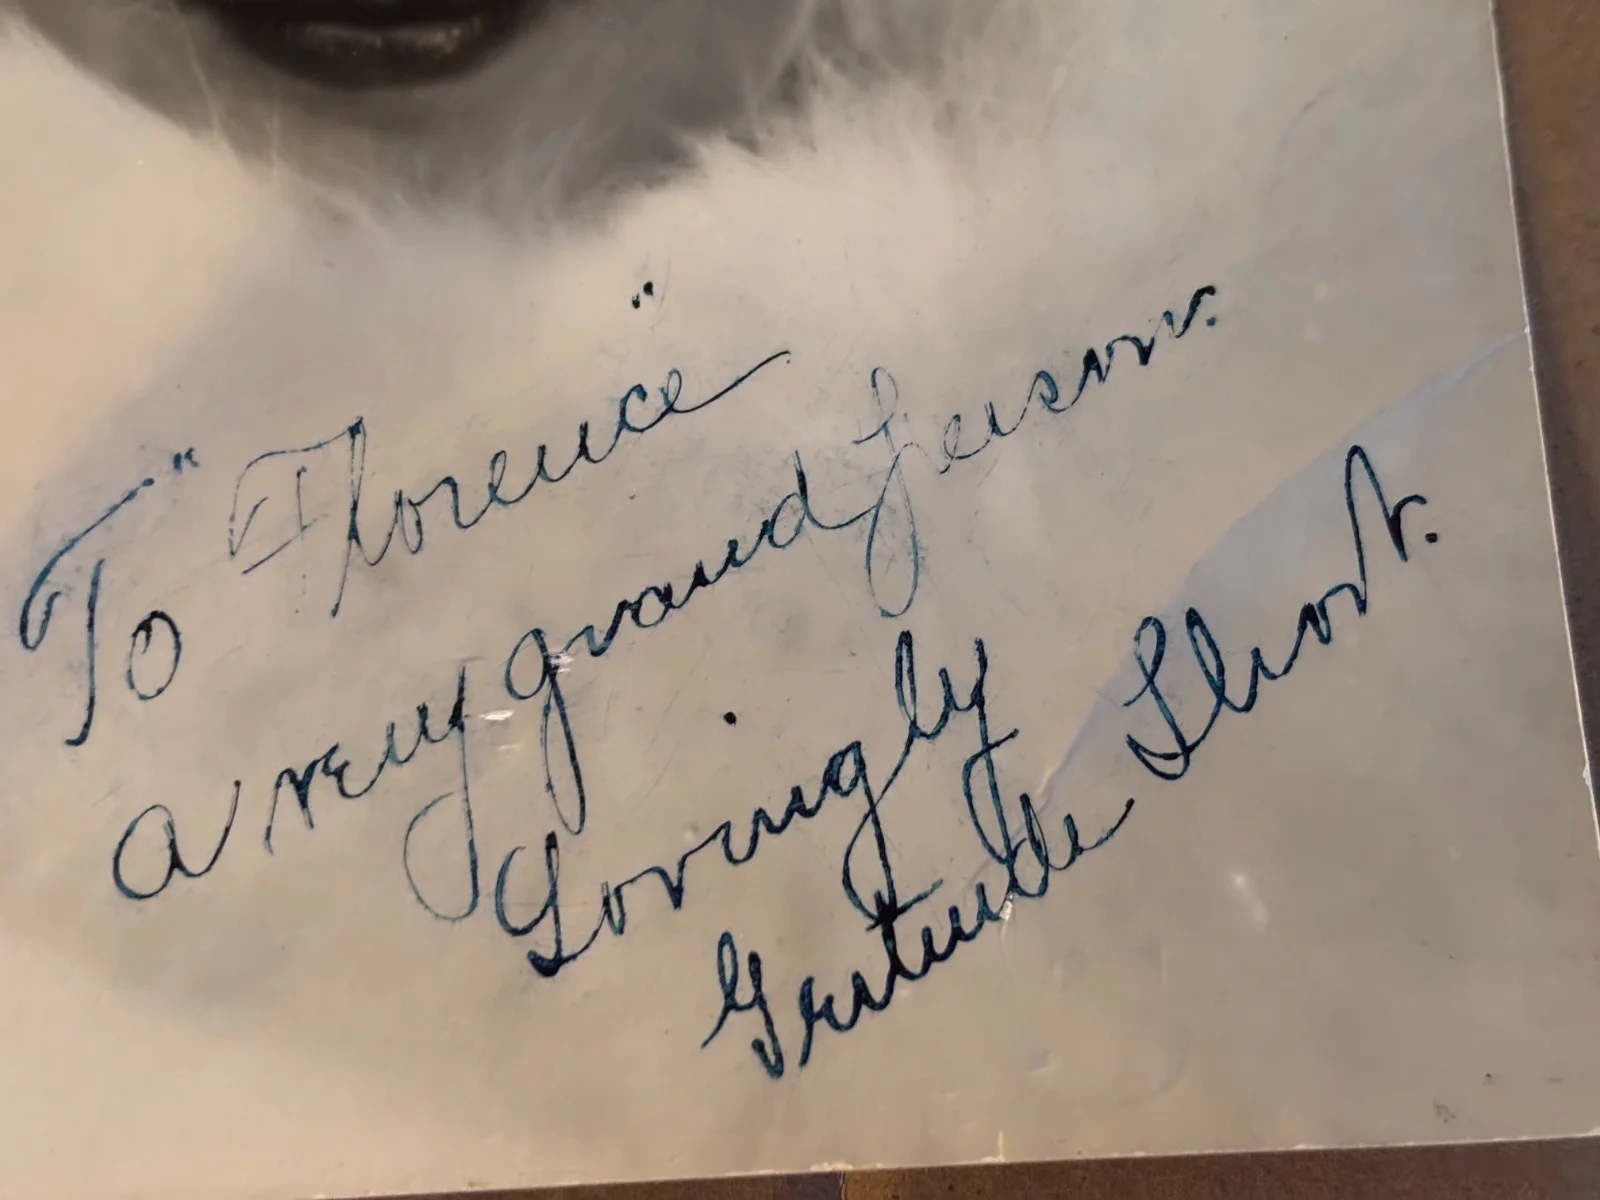 To "Florence"
a very grand person.
Lovingly
Gertrude